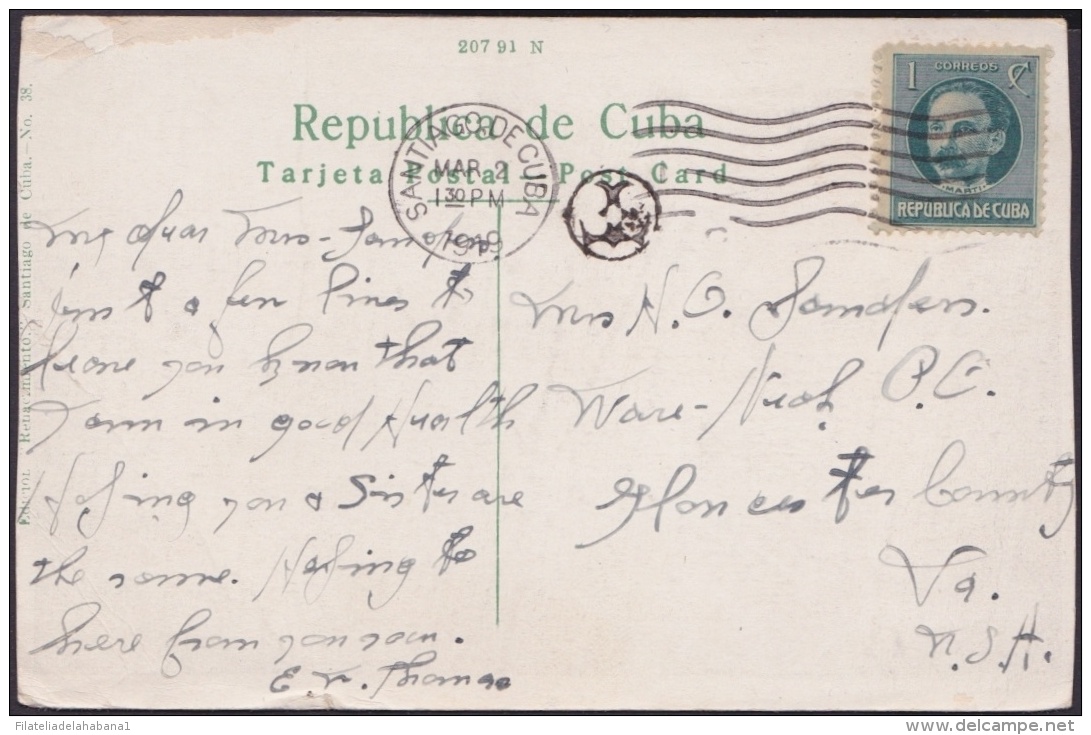 207 91 N
Republica de Cuba
Tarjeta Postal - Post Card
1 CORREOS ¢
MARTI
REPUBLICA DE CUBA
SANTIAGO DE CUBA
MAR 2
1 30 PM
1919
Editor Renacimiento; Santiago de Cuba.- No. 38.
My dear Mrs-
Just a few lines to
leave you know that
I am in good Health
Hoping you & Sister are
the same. Hoping to
here from you soon.
E. Thomas
Mrs N. C.
Ware-Neck P.O.
Gloucester County
Va.
U.S.A.
Filateliadelahabana1
delcampe.net